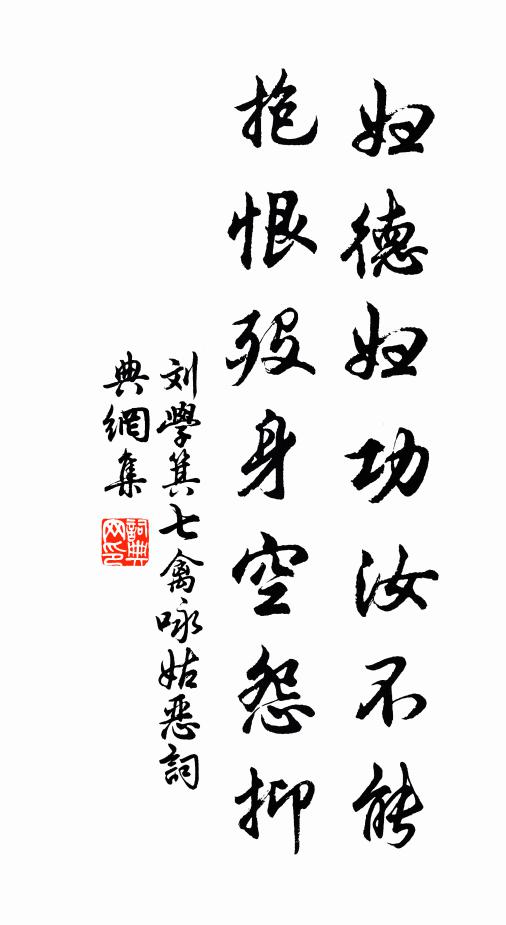 妇德妇功汝不能
抱恨殁身空怨抑
刘学箕七禽咏姑恶詞
典網集
詞典网印